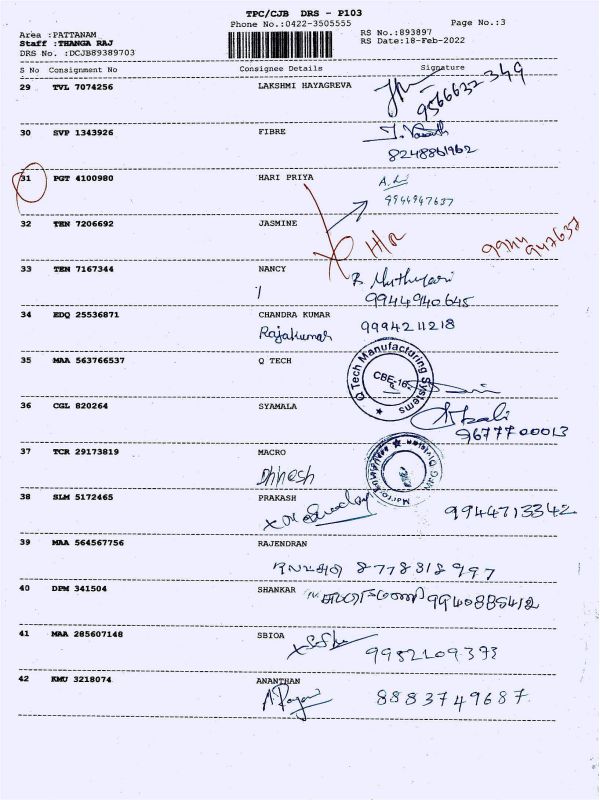 TPC/CJB DRS - P103
Phone No.:0422-3505555
Page No.:3
Area :PATTANAM
RS No.:893897
Staff :THANGA RAJ
RS Date:18-Feb-2022
DRS No. :DCJB89389703
S No Consignment No Consignee Details Signature
29 TVL 7074256 LAKSHMI HAYAGREVA
9566632349
30 SVP 1343926 FIBRE
8248861962
31 PGT 4100980 HARI PRIYA
9944947637
32 TEN 7206692 JASMINE
H/R
9944
947637
33 TEN 7167344 NANCY
B. Muthumari
9944940645
34 EDQ 25536871 CHANDRA KUMAR
Rajakumar 9994211218
35 MAA 563766537 Q TECH
Q Tech Manufacturing Systems
CBE-16
36 CGL 820264 SYAMALA
9677700013
37 TCR 29173819 MACRO
Dhinesh
38 SLM 5172465 PRAKASH
9944713342
39 MAA 564567756 RAJENDRAN
8778318997
40 DPM 341504 SHANKAR
9940885412
41 MAA 285607148 SBIOA
9952109373
42 KMU 3218074 ANANTHAN
8883749687